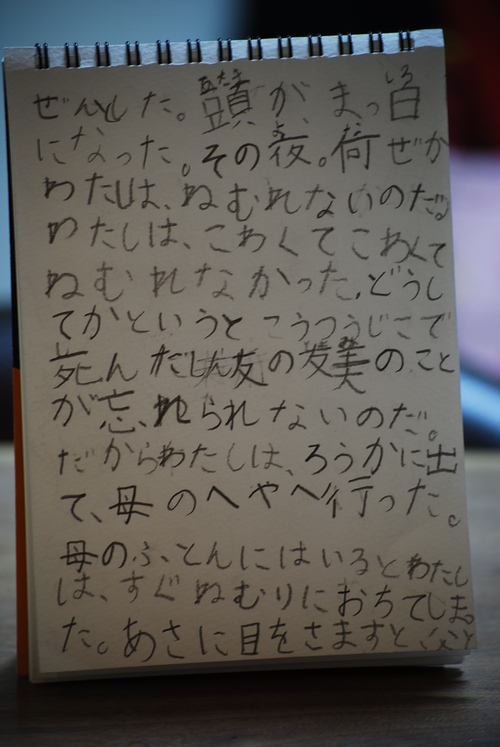 ぜんとした。頭が、まっ白
になった。その夜。荷ぜか
わたしは、ねむれないのだ。
わたしは、こわくてこわくて
ねむれなかった。どうし
てかというとこうつうじこで
死んだしん友の友美のこと
が忘れられないのだ。
だからわたしは、ろうかに出
て、母のへやへ行った。
母のふとんにはいるとわたし
は、すぐねむりにおちてしまっ
た。あさに目をさますと